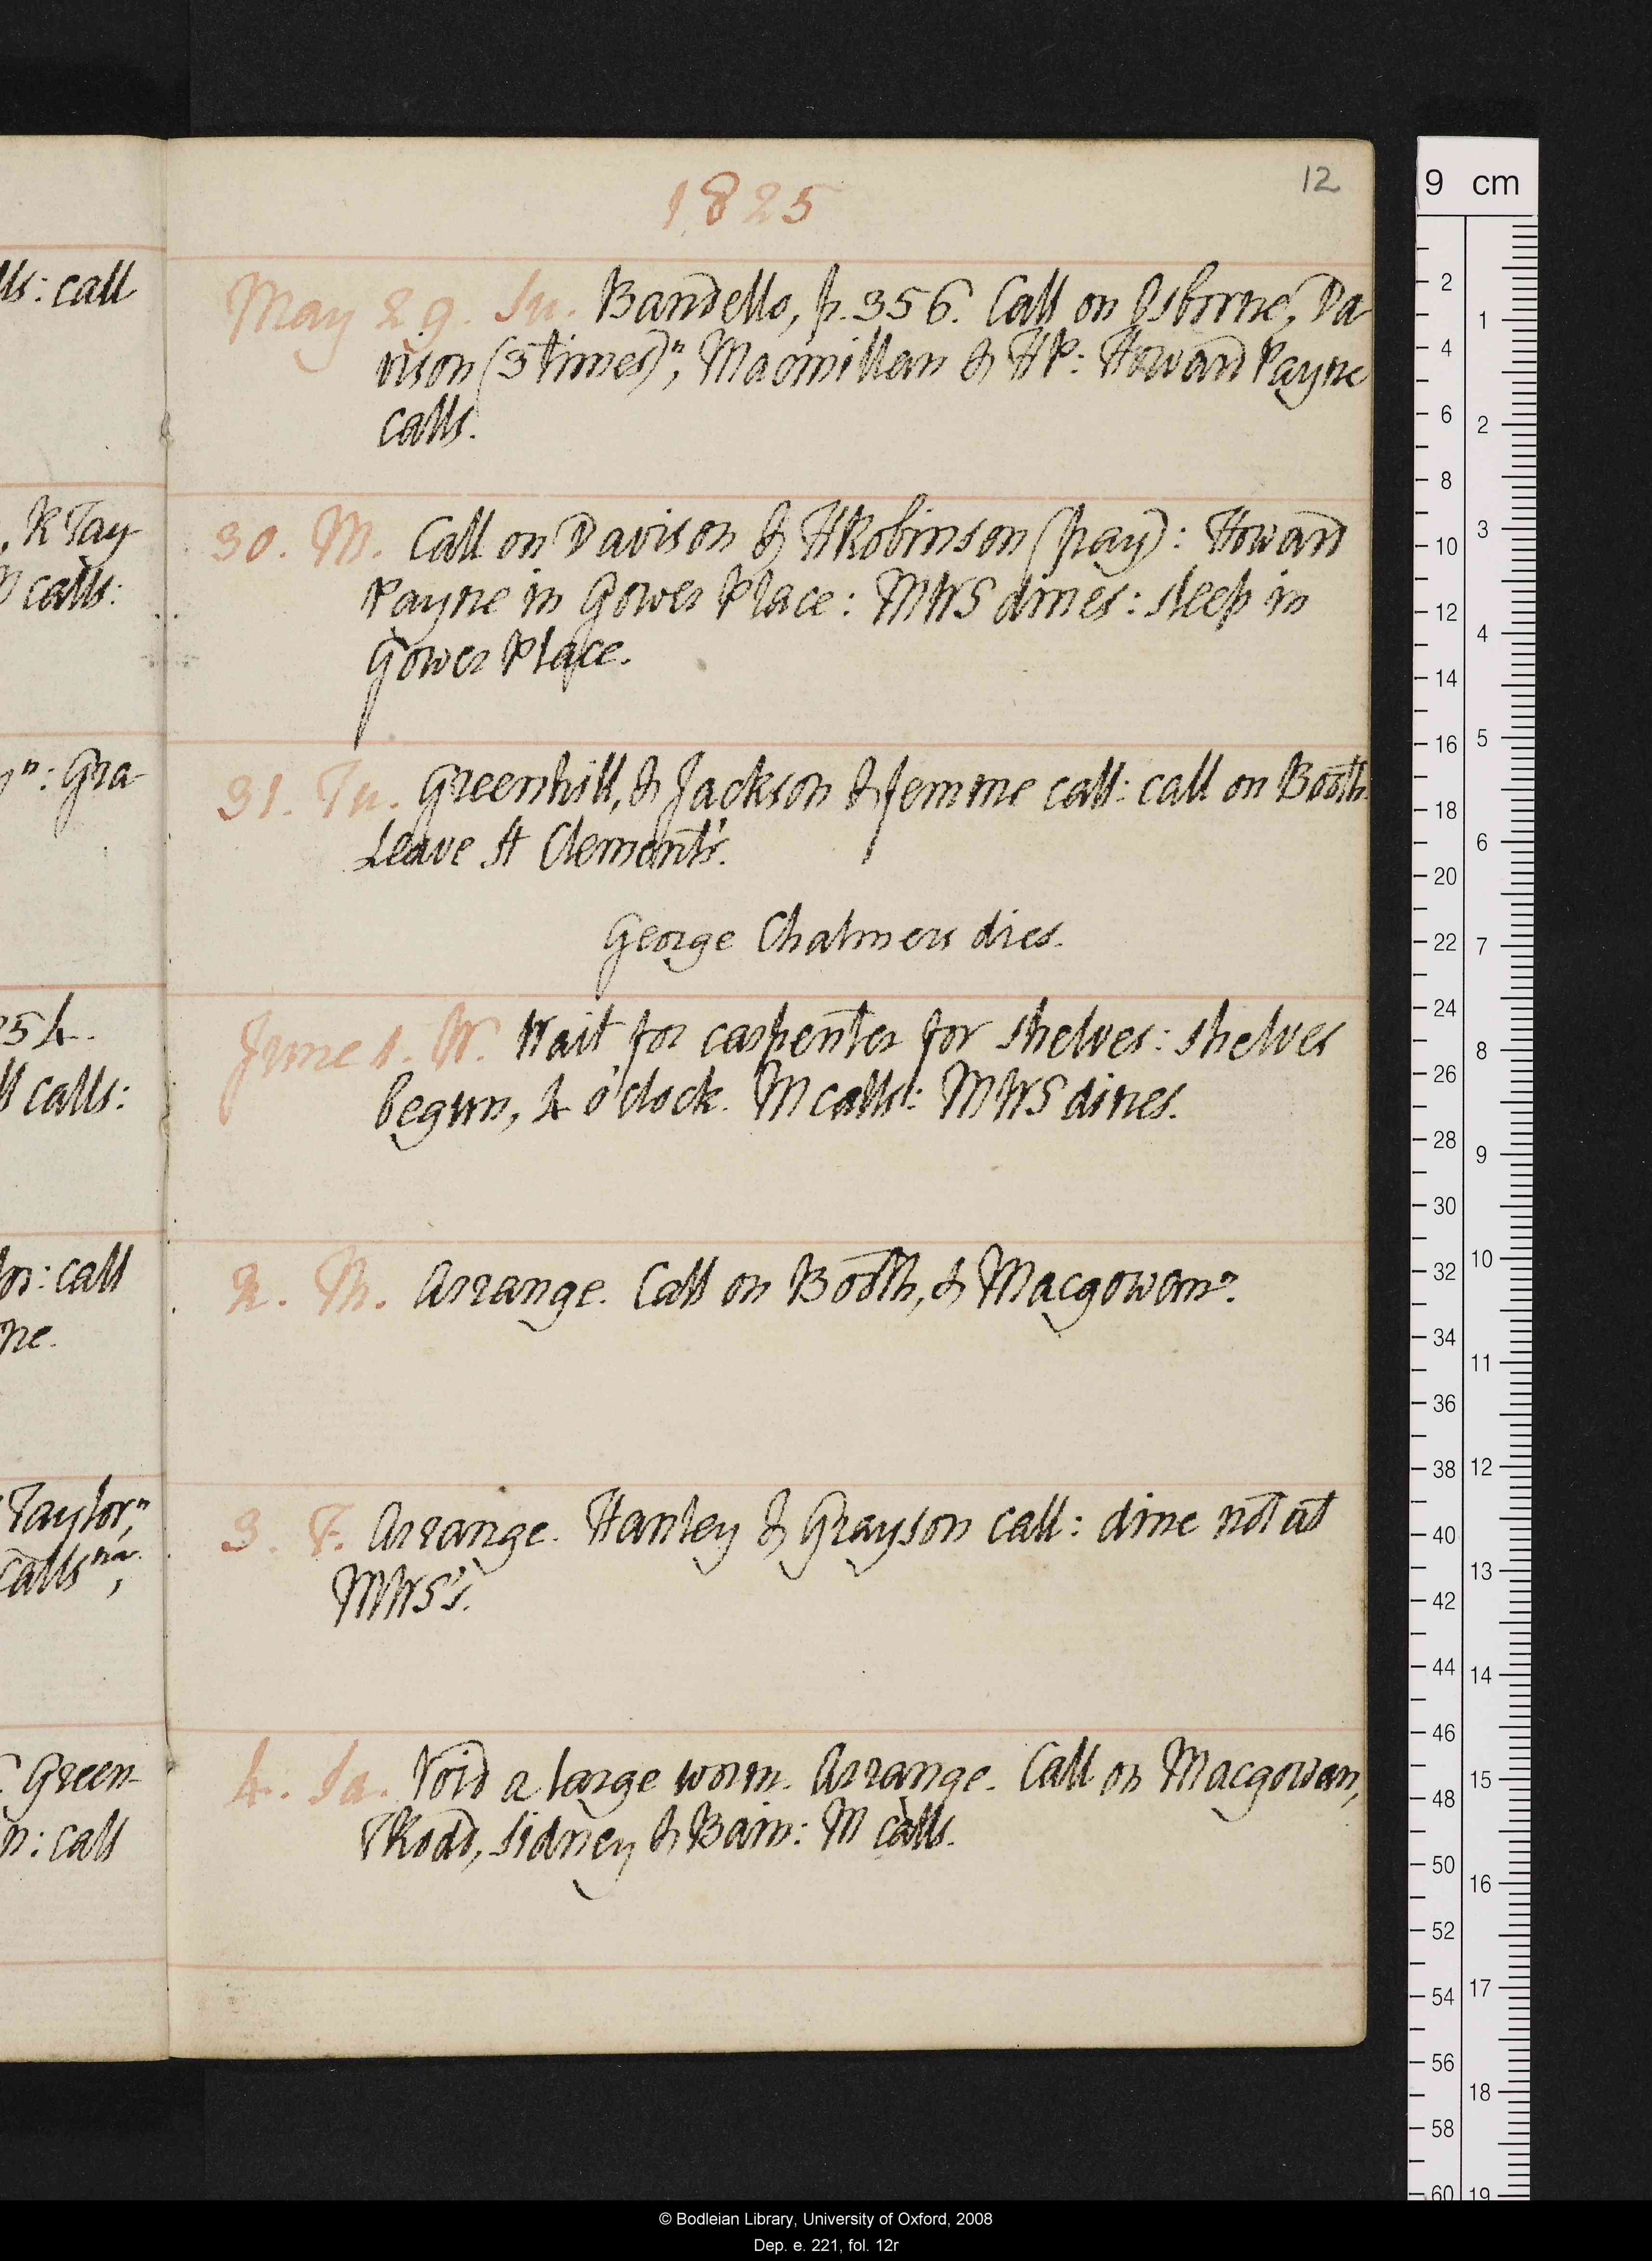 12
1825
lls: call
May 29. Su. Bandello, p. 356. Call on Osborne, Da-
vison (3 times)ⁿ, Macmillan & HP: Howard Payne
calls.
, R Tay-
M calls:
30. M. Call on Davison & HRobinson (pay): Howard
Payne in Gower Place: MWS dines: sleep in
Gower Place.
yⁿ: Gra-
31. Tu. Greenhill, & Jackson & femme call: call on Booth.
Leave St Clement's.
George Chalmers dies.
54.
ll calls:
June 1. W. Wait for carpenter for shelves: shelves
begun, 4 o'clock. M calls: MWS dines.
lor: call
ne.
2. Th. Arrange. Call on Booth, & Macgowanⁿ.
Taylorⁿ,
calls
3. F. Arrange. Hanley & Grayson call: dine not at
MWS's.
Green-
n: call
4. Sa. Void a large worm. Arrange. Call on Macgowan,
TRodd, Sidney & Bain: M calls.
9 cm
2 4 6 8 10 12 14 16 18 20 22 24 26 28 30 32 34 36 38 40 42 44 46 48 50 52 54 56 58 60
1 2 3 4 5 6 7 8 9 10 11 12 13 14 15 16 17 18 19
© Bodleian Library, University of Oxford, 2008
Dep. e. 221, fol. 12r